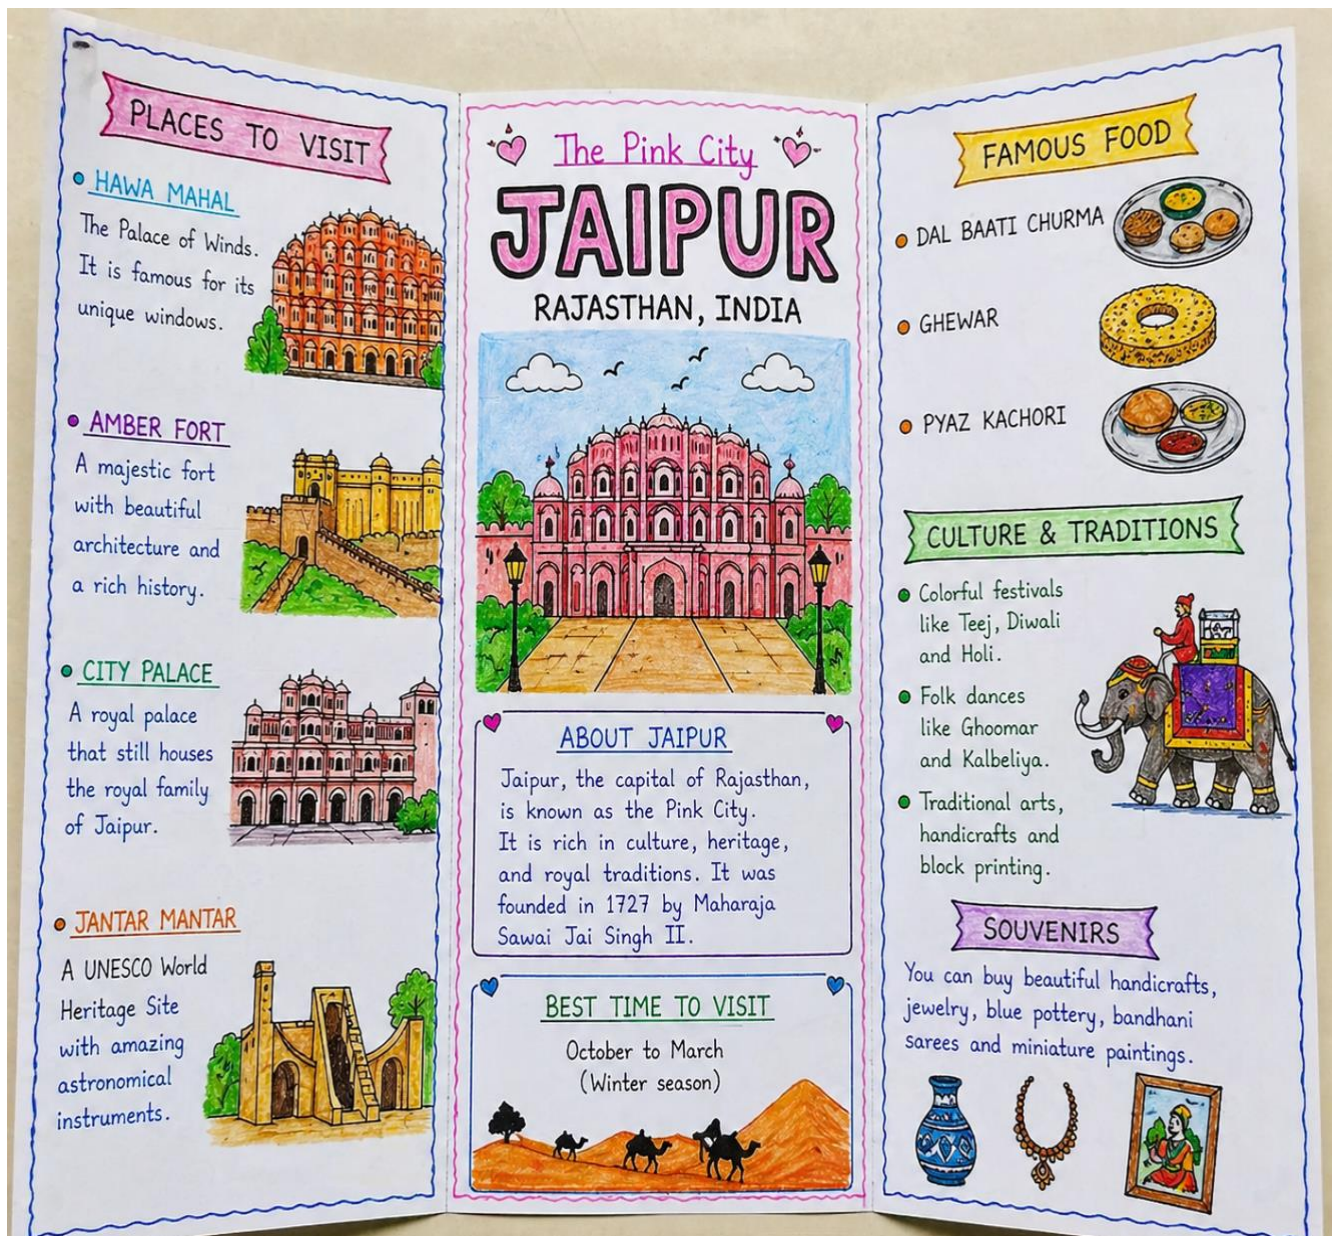 PLACES TO VISIT
HAWA MAHAL
The Palace of Winds.
It is famous for its
unique windows.
AMBER FORT
A majestic fort
with beautiful
architecture and
a rich history.
CITY PALACE
A royal palace
that still houses
the royal family
of Jaipur.
JANTAR MANTAR
A UNESCO World
Heritage Site
with amazing
astronomical
instruments.
The Pink City
JAIPUR
RAJASTHAN, INDIA
ABOUT JAIPUR
Jaipur, the capital of Rajasthan,
is known as the Pink City.
It is rich in culture, heritage,
and royal traditions. It was
founded in 1727 by Maharaja
Sawai Jai Singh II.
BEST TIME TO VISIT
October to March
(Winter season)
FAMOUS FOOD
DAL BAATI CHURMA
GHEWAR
PYAZ KACHORI
CULTURE & TRADITIONS
Colorful festivals
like Teej, Diwali
and Holi.
Folk dances
like Ghoomar
and Kalbeliya.
Traditional arts,
handicrafts and
block printing.
SOUVENIRS
You can buy beautiful handicrafts,
jewelry, blue pottery, bandhani
sarees and miniature paintings.